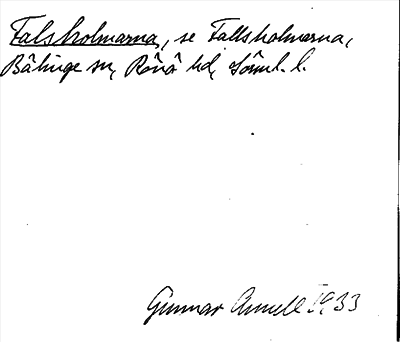 Falsholmarna, se Fallsholmarna,
Bälinge sn, Rönö hd, Söml. l.
Gunnar Annell 1933